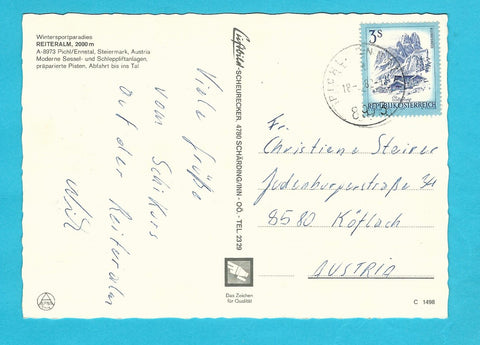 Wintersportparadies
REITERALM, 2000 m
A-8973 Pichl/Ennstal, Steiermark, Austria
Moderne Sessel- und Schleppliftanlagen,
präparierte Pisten, Abfahrt bis ins Tal
Viele Grüße
vom Schikurs
auf der Reiteralm
Luftbild-SCHEURECKER, 4780 SCHÄRDING/INN - OÖ. - TEL. 2329
3S
REPUBLIK ÖSTERREICH
8973
Fr.
Christiane Steirer
Judenburgerstraße
8580 Köflach
AUSTRIA
Das Zeichen
für Qualität
C 1498